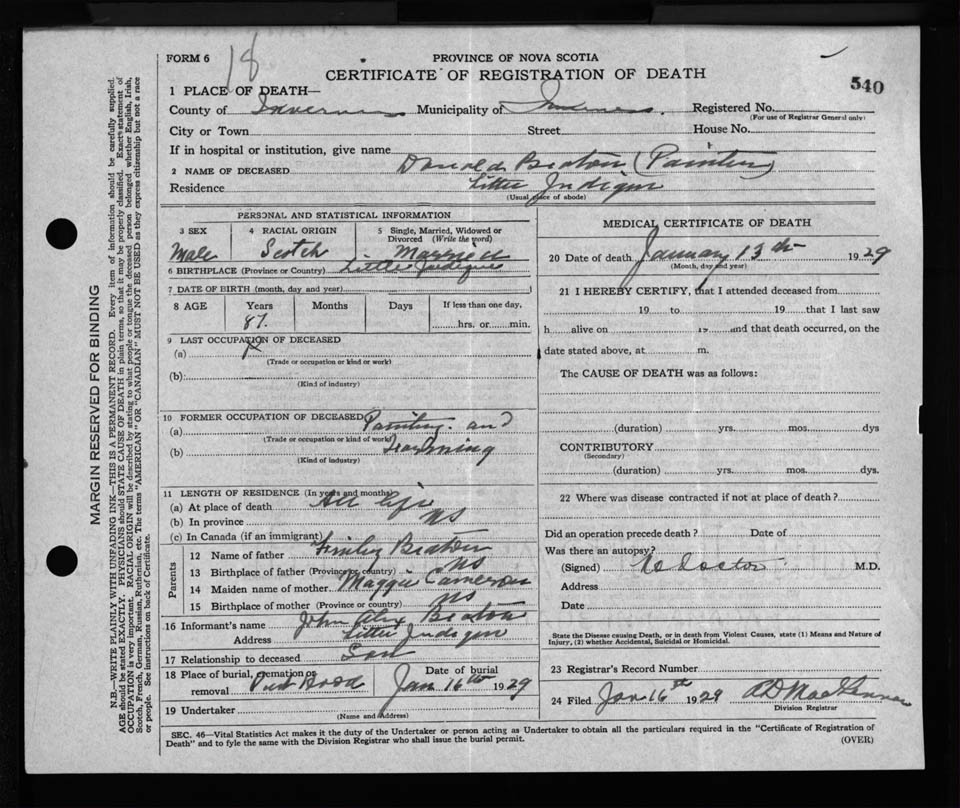 FORM 6 18
PROVINCE OF NOVA SCOTIA
CERTIFICATE OF REGISTRATION OF DEATH
540
1 PLACE OF DEATH—
County of Inverness Municipality of Inverness. Registered No.
(For use of Registrar General only)
City or Town Street House No.
If in hospital or institution, give name
2 NAME OF DECEASED Donald Beaton (Painter)
Residence Little Judique
(Usual place of abode)
PERSONAL AND STATISTICAL INFORMATION
3 SEX 4 RACIAL ORIGIN 5 Single, Married, Widowed or Divorced (Write the word)
Male Scotch Married
6 BIRTHPLACE (Province or Country) Little Judique
7 DATE OF BIRTH (month, day and year)
8 AGE Years Months Days If less than one day,
87. hrs. or min.
9 LAST OCCUPATION OF DECEASED
(a)
(Trade or occupation or kind or work)
(b)
(Kind of industry)
10 FORMER OCCUPATION OF DECEASED
(a) Painting. and
(Trade or occupation or kind of work)
(b)
(Kind of industry)
11 LENGTH OF RESIDENCE (In years and months)
(a) At place of death All life
(b) In province NS
(c) In Canada (if an immigrant)
Parents
12 Name of father Finlay Beaton
13 Birthplace of father (Province or country) NS
14 Maiden name of mother Maggie Cameron
15 Birthplace of mother (Province or country) NS
16 Informant's name John Alex Beaton
Address Little Judique
17 Relationship to deceased Son
18 Place of burial, cremation or removal Port Hood Date of burial Jan 16th 1929
19 Undertaker
(Name and Address)
MEDICAL CERTIFICATE OF DEATH
20 Date of death January 13th 1929
(Month, day and year)
21 I HEREBY CERTIFY, that I attended deceased from
19 to 19 that I last saw
h alive on 19 and that death occurred, on the
date stated above, at m.
The CAUSE OF DEATH was as follows:
(duration) yrs. mos. dys
CONTRIBUTORY
(Secondary)
(duration) yrs. mos. dys.
22 Where was disease contracted if not at place of death?
Did an operation precede death? Date of
Was there an autopsy?
(Signed) No Doctor M.D.
Address
Date
State the Disease causing Death, or in death from Violent Causes, state (1) Means and Nature of
Injury, (2) whether Accidental, Suicidal or Homicidal.
23 Registrar's Record Number
24 Filed Jan 16th 1929
Division Registrar
SEC. 46—Vital Statistics Act makes it the duty of the Undertaker or person acting as Undertaker to obtain all the particulars required in the "Certificate of Registration of
Death" and to fyle the same with the Division Registrar who shall issue the burial permit.
(OVER)
MARGIN RESERVED FOR BINDING
N.B.—WRITE PLAINLY WITH UNFADING INK—THIS IS A PERMANENT RECORD. Every item of information should be carefully supplied.
AGE should be stated EXACTLY. PHYSICIANS should STATE CAUSE OF DEATH in plain terms, so that it may be properly classified. Exact statement of
OCCUPATION is very important. RACIAL ORIGIN will be described by stating to what people or tongue the deceased person belonged whether English, Irish,
Scotch, French, German, Russian, Ruthenian, etc. The terms "AMERICAN" OR "CANADIAN" MUST NOT BE USED as they express citizenship but not a race
or people. See instructions on back of Certificate.